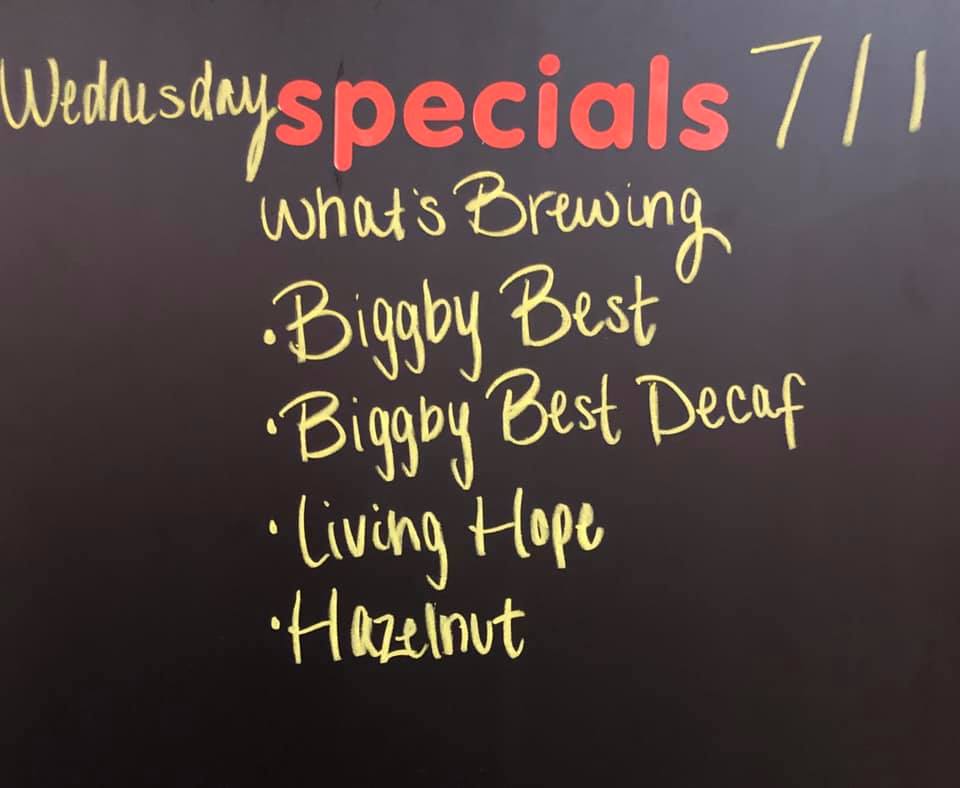 Wednesday specials 7/1
What's Brewing
• Biggby Best
• Biggby Best Decaf
• Living Hope
• Hazelnut